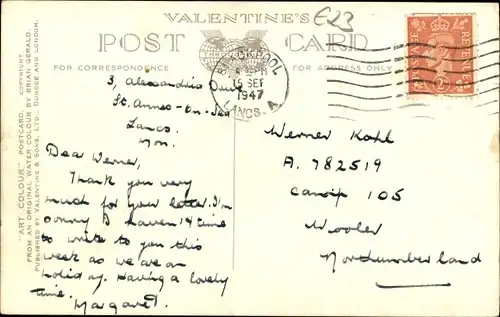 VALENTINE'S
£23
POST CARD
FOR CORRESPONDENCE
FOR ADDRESS ONLY
BLACKPOOL
SEP
1947
LANCS. A
POSTAGE REVENUE
"ART COLOUR" POSTCARD. COPYRIGHT
FROM AN ORIGINAL WATER COLOUR BY BRIAN GERALD.
PUBLISHED BY VALENTINE & SONS, LTD., DUNDEE AND LONDON.
3, Alexandria
St. Annes-on-Sea
Lancs
Mon.
Dear Werner,
Thank you very
much for your letter. I'm
sorry I haven't time
to write to you this
week as we are on
holiday. Having a lovely
time.
Margaret.
Werner Kohl
A. 782519
Camp 105
Wooler
Northumberland